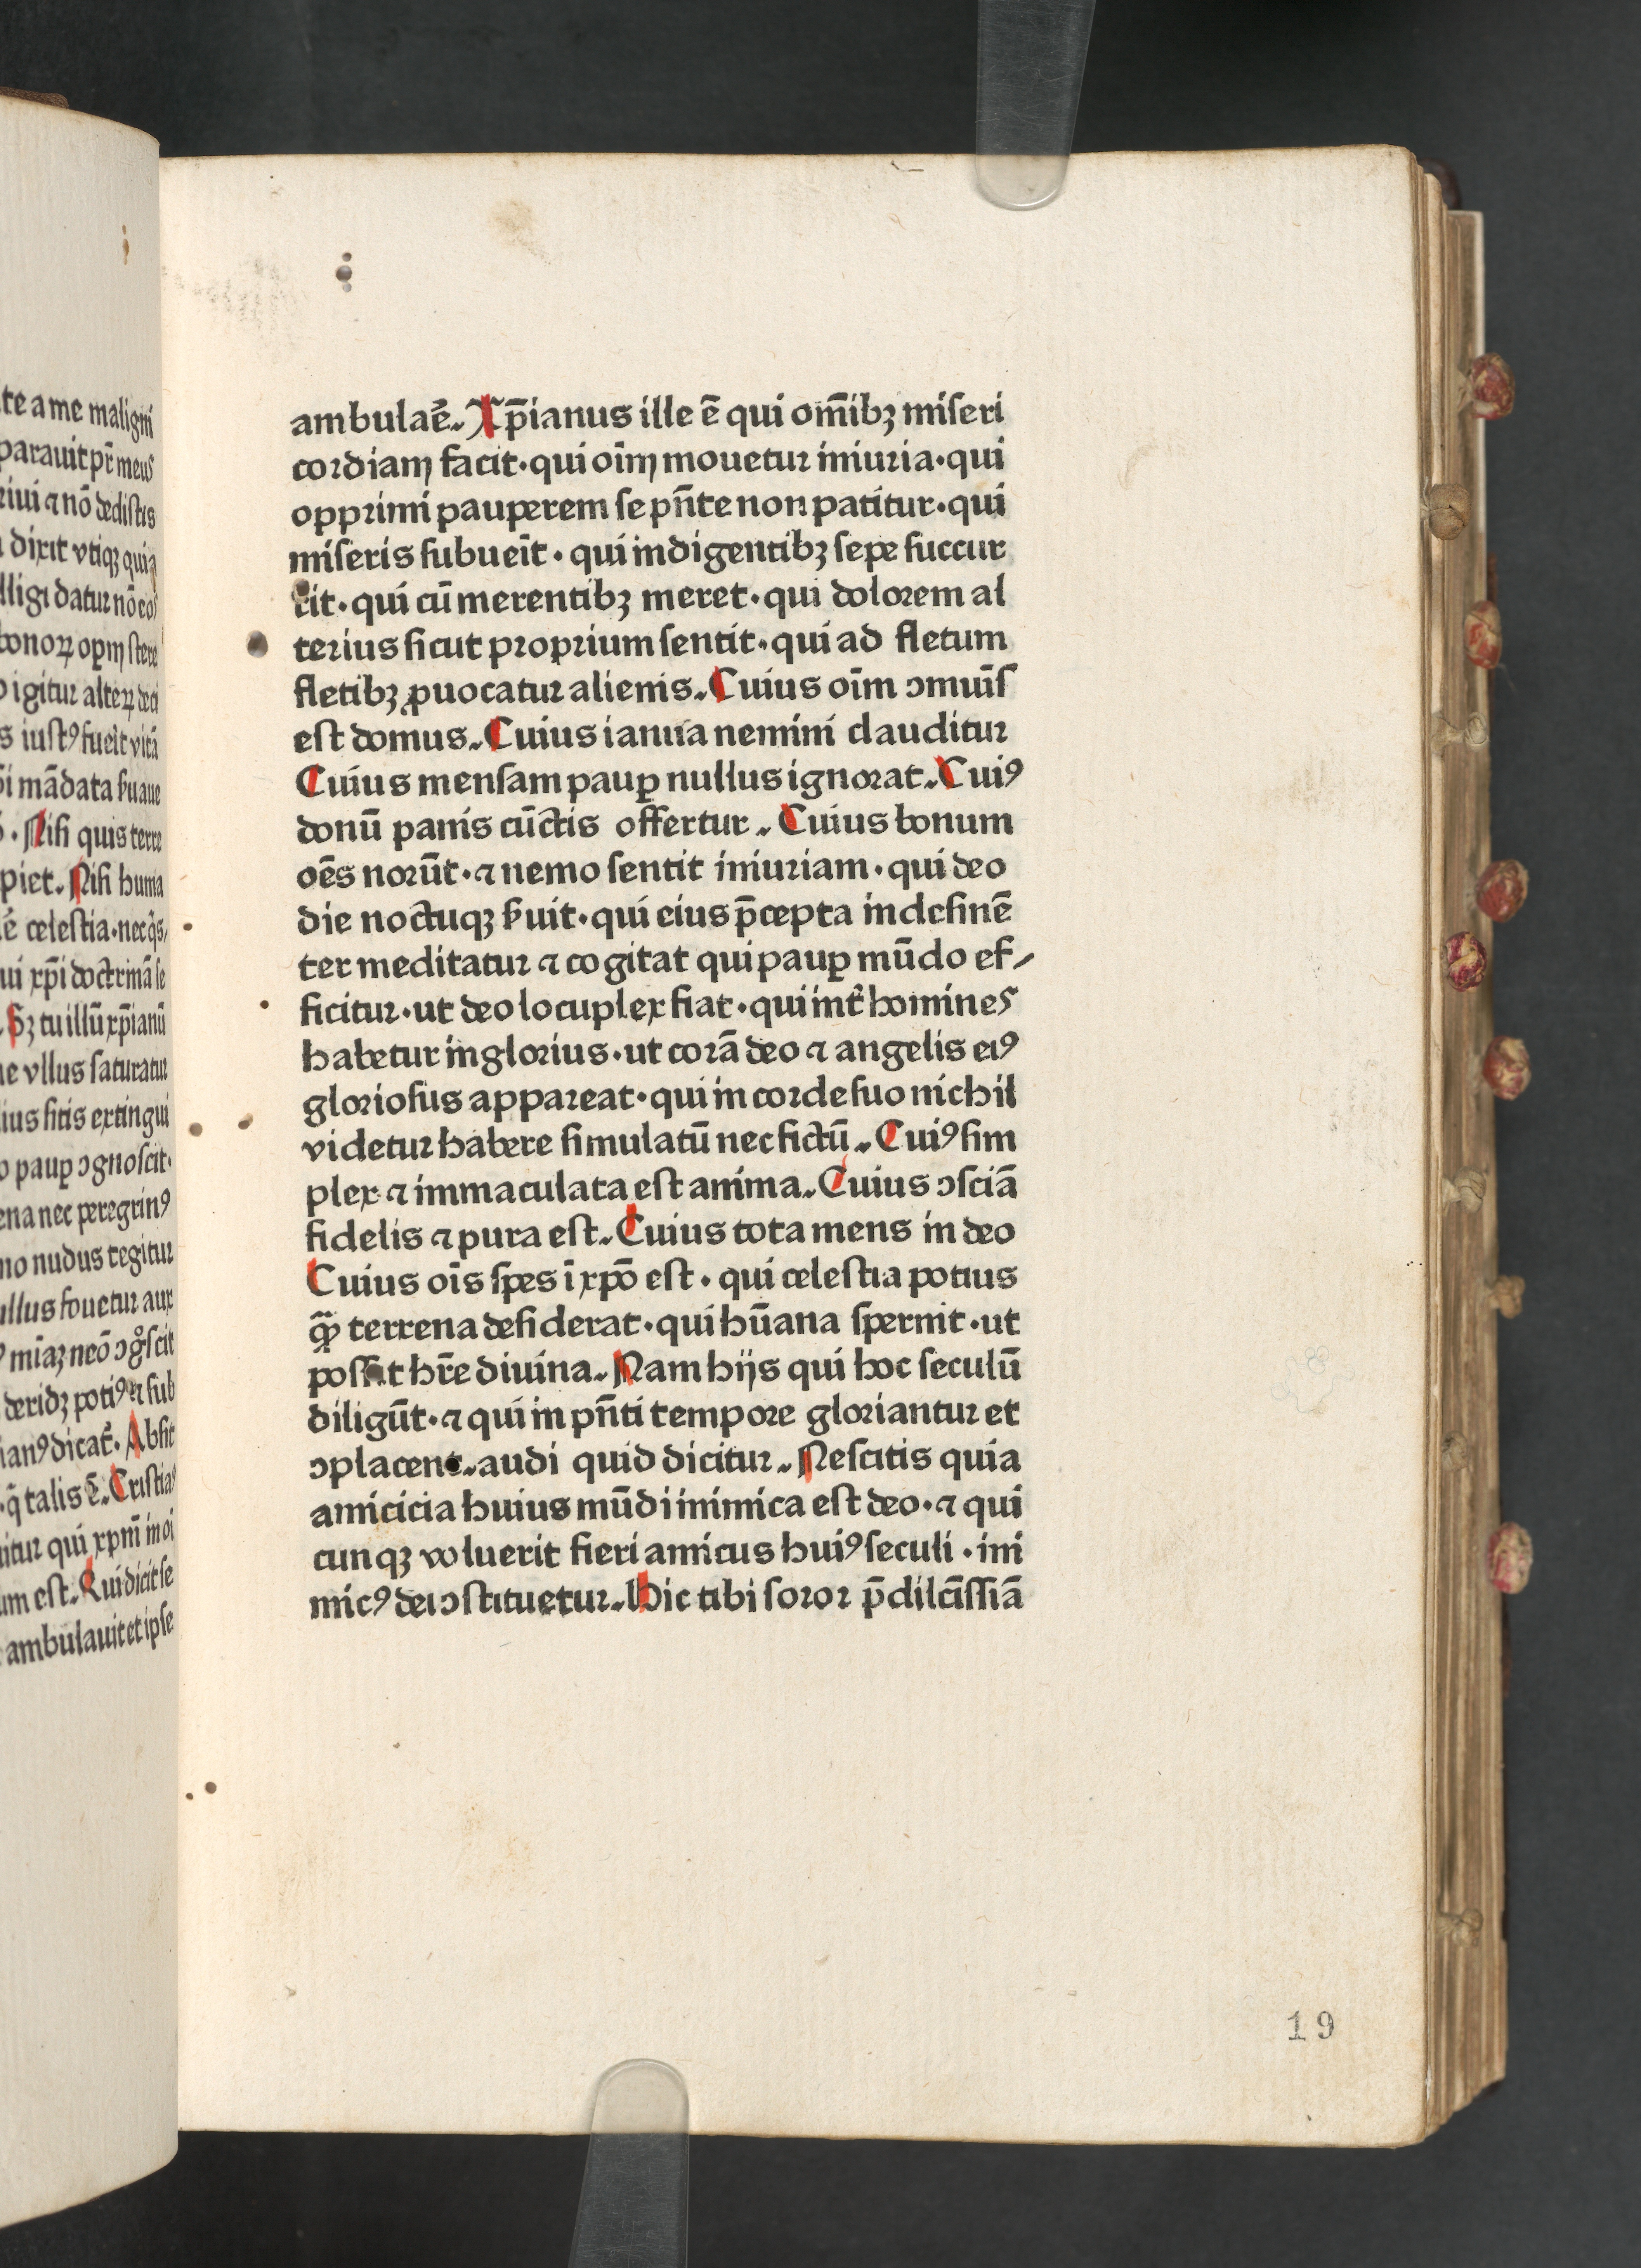 te a me maligni
parauit pr̄ meus
riui ⁊ nō dedistis
dixit vtiqꝫ quia
lligi datur nō eos
bonoꝝ opm stere
igitur alteꝝ deci
s iustꝰ fueīt vitā
i mādata ẜuaue
. Nisi quis terre
piet. Nisi huma
ē celestia·nec qͥs,
ui xp̄i doctrinā se
Sꝫ tu illū xp̄ianū
e vllus saturatur
ius sitis extingui
o pauꝑ ↄgnoscit·
ena nec peregrinꝰ
mo nudus tegitur
ullus fouetur aux
miāꝫ neō ↄgͦscit
deridꝫ potiꝰ ⁊ sub
ianꝰ dicat᷑. Absit
q̄ talis ē. Cristiaꝰ
itur qui xpm̄ in oi
um est. Qui dicit se
ambulauit et ipse
ambulaē̉. Xp̄ianus ille ē qui om̄ibꝫ miseri
cordiam facit·qui oīm mouetur iniuria·qui
opprimi pauperem se pn̄te non patitur·qui
miseris subueīt·qui indigentibꝫ sepe succur
rit·qui cū merentibꝫ meret·qui dolorem al
terius sicut proprium sentit·qui ad fletum
fletibꝫ ꝓuocatur alienis. Cuius oīm ↄmuīs
est domus. Cuius ianua nemini clauditur
Cuius mensam pauꝑ nullus ignorat. Cuiꝰ
donū panis cūctis offertur. Cuius bonum
oēs norūt·⁊ nemo sentit iniuriam·qui deo
die noctuqꝫ ẜuit·qui eius p̄cepta indesinē
ter meditatur ⁊ cogitat qui pauꝑ mūdo ef⸗
ficitur·ut deo locuplex fiat·qui int̉ homines
habetur inglorius·ut corā deo ⁊ angelis eiꝰ
gloriosus appareat·qui in corde suo nichil
videtur habere simulatū nec fictū. Cuiꝰ sim
plex ⁊ immaculata est anima. Cuius ↄsciā
fidelis ⁊ pura est. Cuius tota mens in deo
Cuius oīs spes ī xpō est·qui celestia potius
ꝙ̄ terrena desiderat·qui hūana spernit·ut
possit hr̄e diuina. Nam hijs qui hoc seculū
diligūt·⁊ qui in pn̄ti tempore gloriantur et
ↄplacent. audi quid dicitur. Nescitis quia
amicicia huius mūdi inimica est deo·⁊ qui
cunqꝫ voluerit fieri amicus huiꝰ seculi·ini
micꝰ dei ↄstituetur. Hic tibi soror p̄dilcīssiā
19